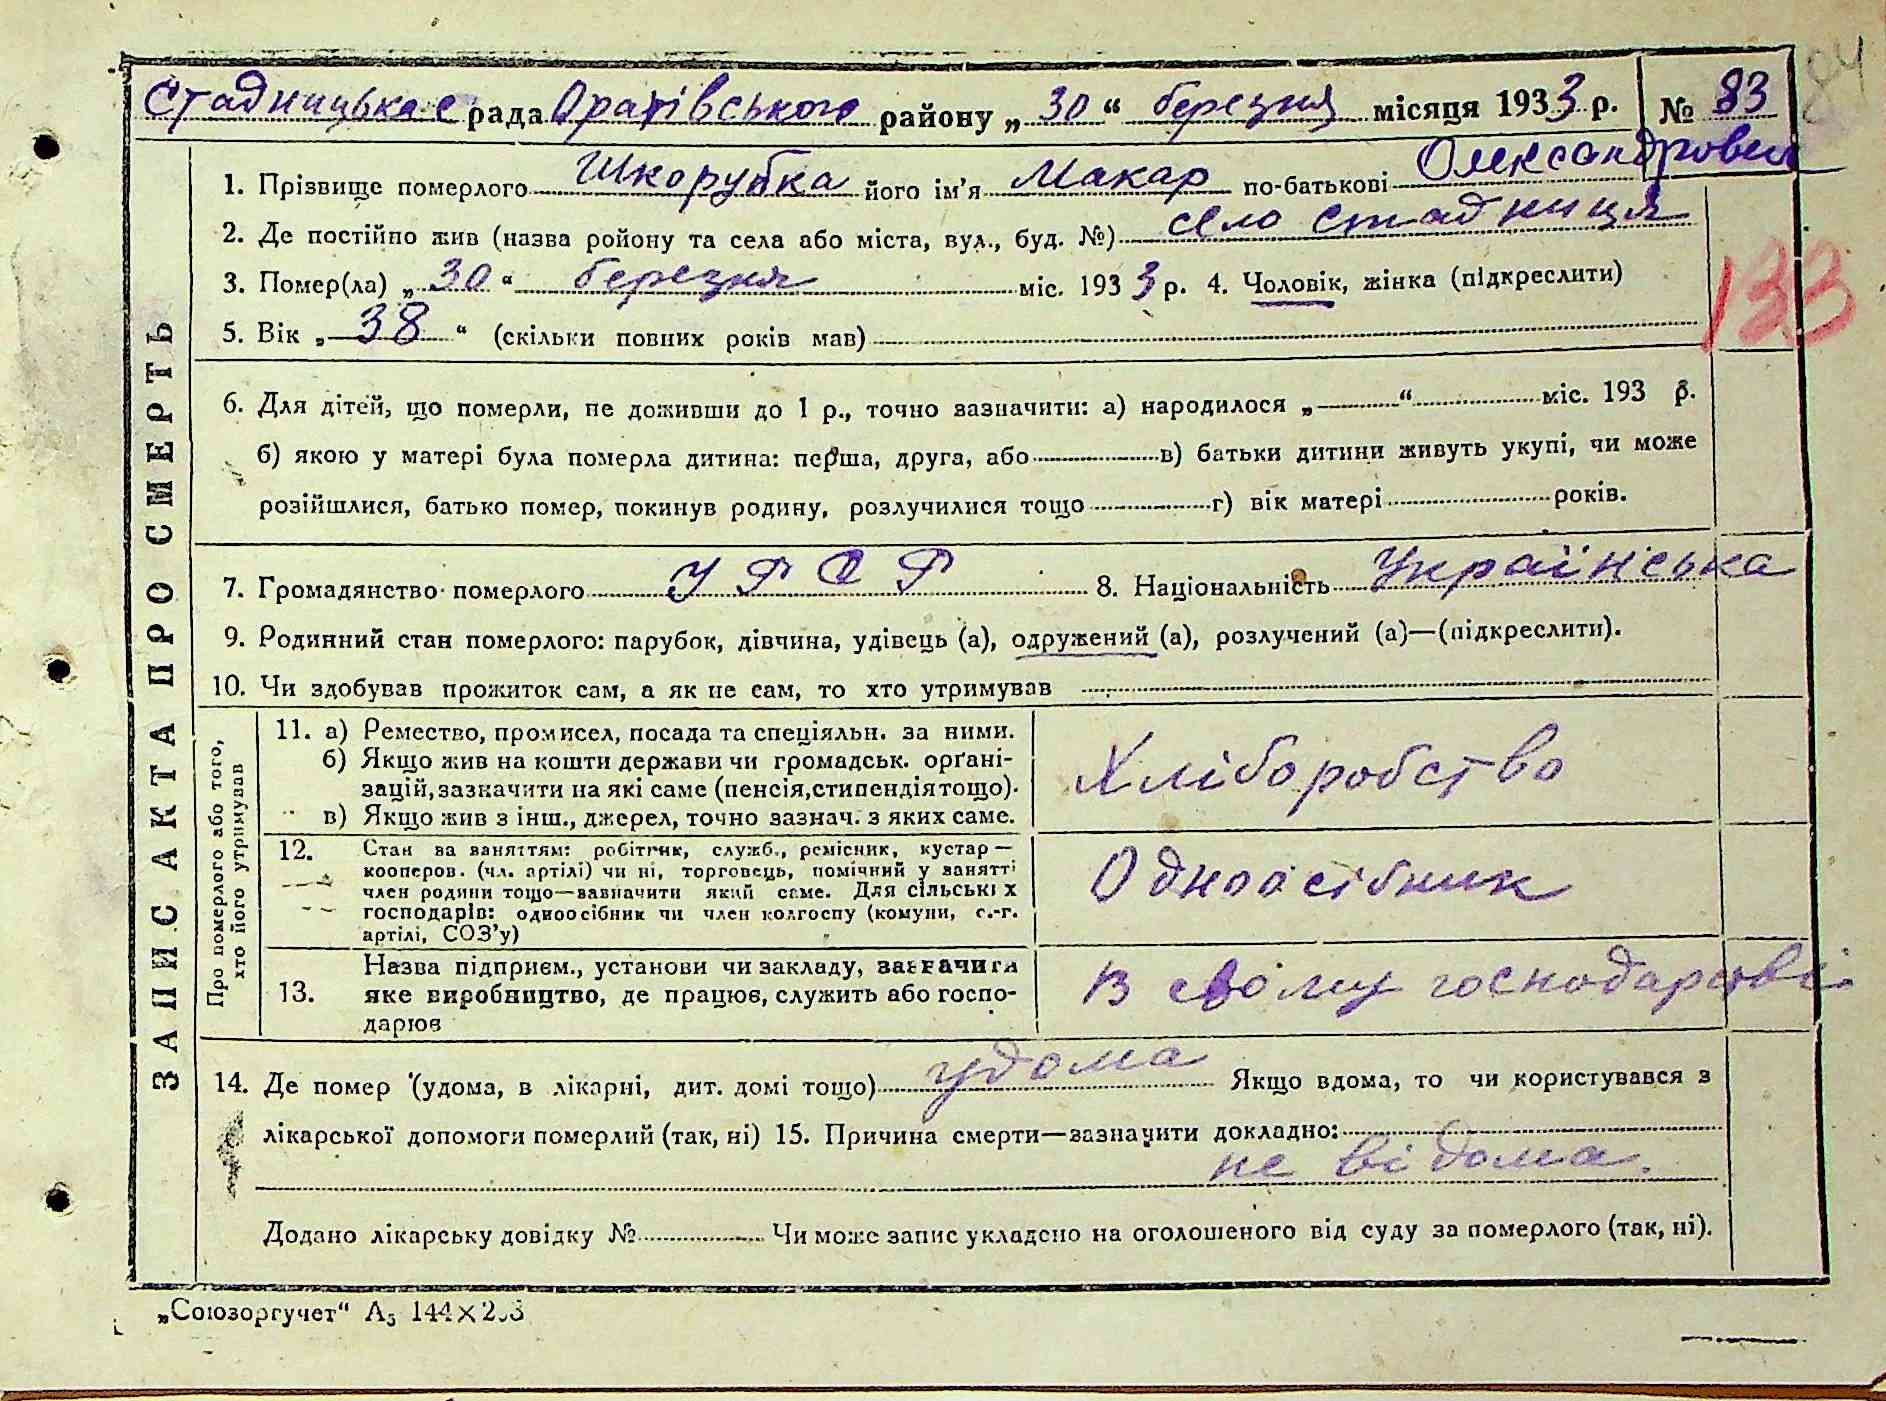 84
Стадницька с рада Оратівського району „30“ березня місяця 1933 р. № 83
ЗАПИС АКТА ПРО СМЕРТЬ
1. Прізвище померлого Шкорупка його ім'я Макар по-батькові Олександрович
2. Де постійно жив (назва ройону та села або міста, вул., буд. №) село Стадниця
3. Помер(ла) „30“ березня міс. 1933 р. 4. Чоловік, жінка (підкреслити)
133
5. Вік „38“ (скільки повних років мав)
6. Для дітей, що померли, не доживши до 1 р., точно зазначити: а) народилося „ “ міс. 193 р.
б) якою у матері була померла дитина: перша, друга, або в) батьки дитини живуть укупі, чи може
розійшлися, батько помер, покинув родину, розлучилися тощо г) вік матері років.
7. Громадянство померлого УРСР 8. Національність Українська
9. Родинний стан померлого: парубок, дівчина, удівець (а), одружений (а), розлучений (а)—(підкреслити).
10. Чи здобував прожиток сам, а як не сам, то хто утримував
Про померлого або того,
хто його утримував
11. а) Ремество, промисел, посада та спеціяльн. за ними.
б) Якщо жив на кошти держави чи громадськ. орґані-
зацій, зазначити на які саме (пенсія, стипендія тощо).
в) Якщо жив з інш., джерел, точно зазнач. з яких саме.
Хліборобство
12. Стан за заняттям: робітник, служб., ремісник, кустар—
кооперов. (чл. артілі) чи ні, торговець, помічний у занятті
член родини тощо—зазначити який саме. Для сільських
господарів: одноосібник чи член колгоспу (комуни, с.-г.
артілі, СОЗ'у)
Одноосібник
13. Назва підприєм., установи чи закладу, зазначити
яке виробництво, де працює, служить або госпо-
дарює
В свому господарстві
14. Де помер (удома, в лікарні, дит. домі тощо) удома Якщо вдома, то чи користувався з
лікарської допомоги померлий (так, ні) 15. Причина смерти—зазначити докладно:
не відома.
Додано лікарську довідку № Чи може запис укладено на оголошеного від суду за померлого (так, ні).
„Союзоргучет“ А5 144×203